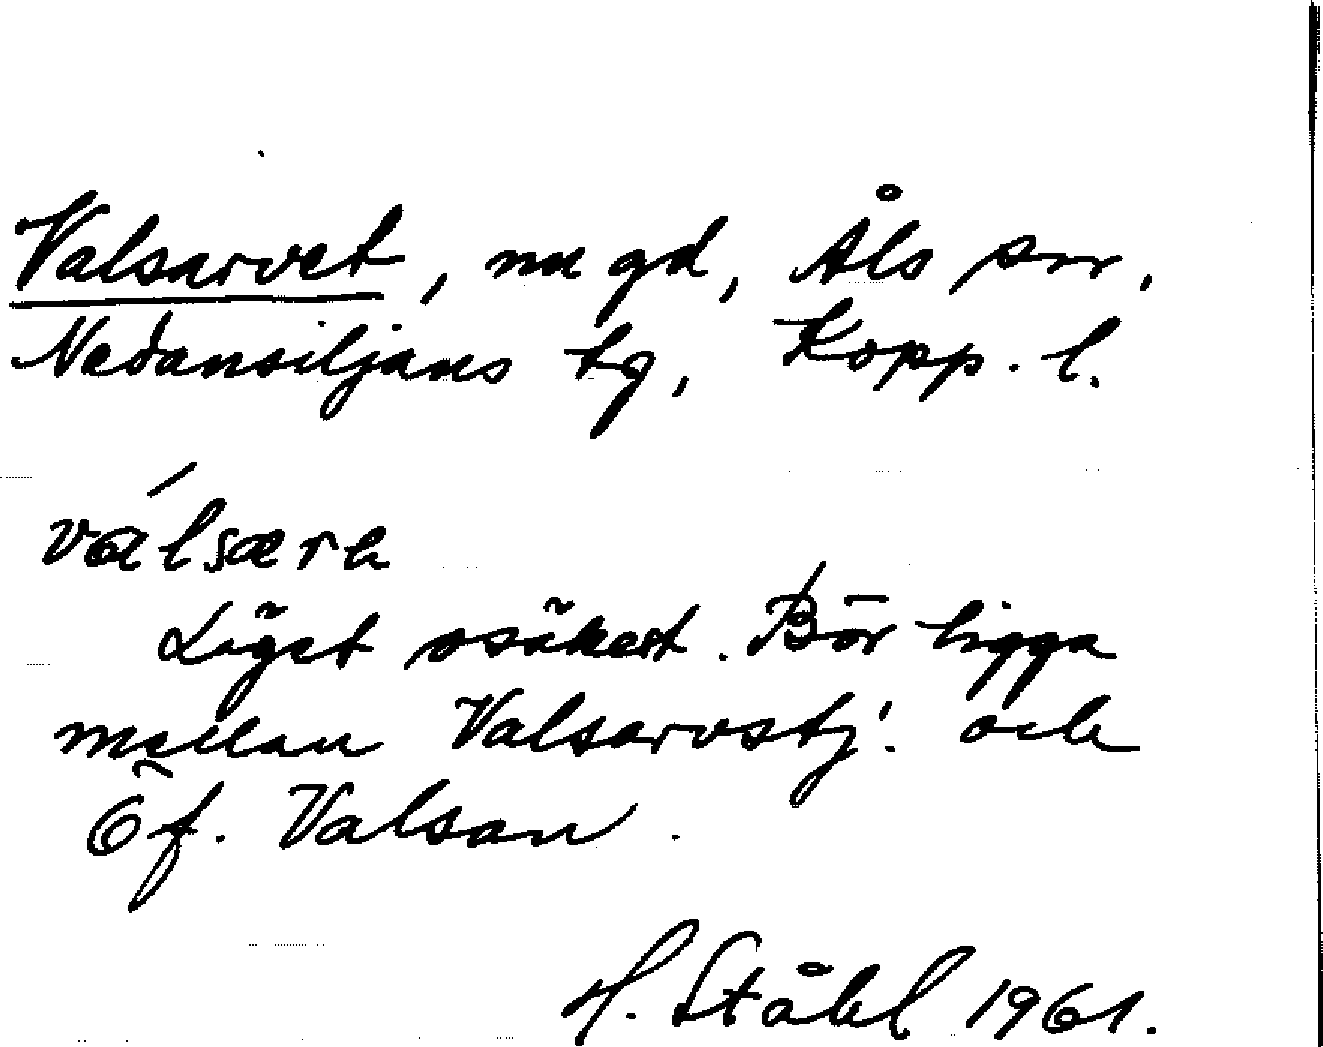 Valsarvet, nu gd, Åls sn,
Nedansiljans tg, Kopp. l.
válsærə
Läget osäkert. Bör ligga
mellan Valsarvstj. och
Öf. Valsan.
H. Ståhl 1961.